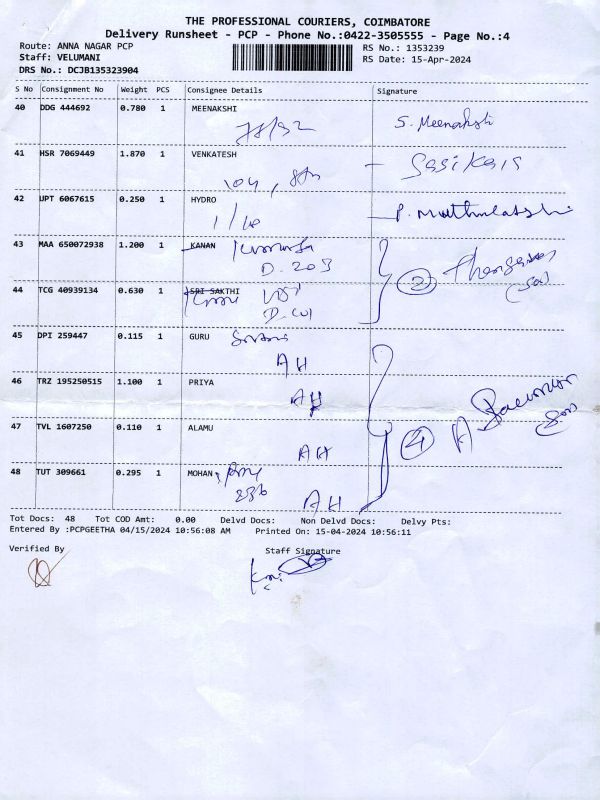 THE PROFESSIONAL COURIERS, COIMBATORE
Delivery Runsheet - PCP - Phone No.:0422-3505555 - Page No.:4
Route: ANNA NAGAR PCP
RS No.: 1353239
Staff: VELUMANI
RS Date: 15-Apr-2024
DRS No.: DCJB135323904
S No Consignment No Weight PCS Consignee Details Signature
40 DDG 444692 0.780 1 MEENAKSHI
78/92 S. Meenakshi
41 HSR 7069449 1.870 1 VENKATESH
104, 8th Sasikala
42 UPT 6067615 0.250 1 HYDRO
P. Muthulakshmi
43 MAA 650072938 1.200 1 KANAN
D. 203
44 TCG 40939134 0.630 1 SRI SAKTHI
2
45 DPI 259447 0.115 1 GURU
AH
46 TRZ 195250515 1.100 1 PRIYA
AH
47 TVL 1607250 0.110 1 ALAMU
AH 4
48 TUT 309661 0.295 1 MOHAN
286
AH
Tot Docs: 48 Tot COD Amt: 0.00 Delvd Docs: Non Delvd Docs: Delvy Pts:
Entered By :PCPGEETHA 04/15/2024 10:56:08 AM Printed On: 15-04-2024 10:56:11
Verified By Staff Signature